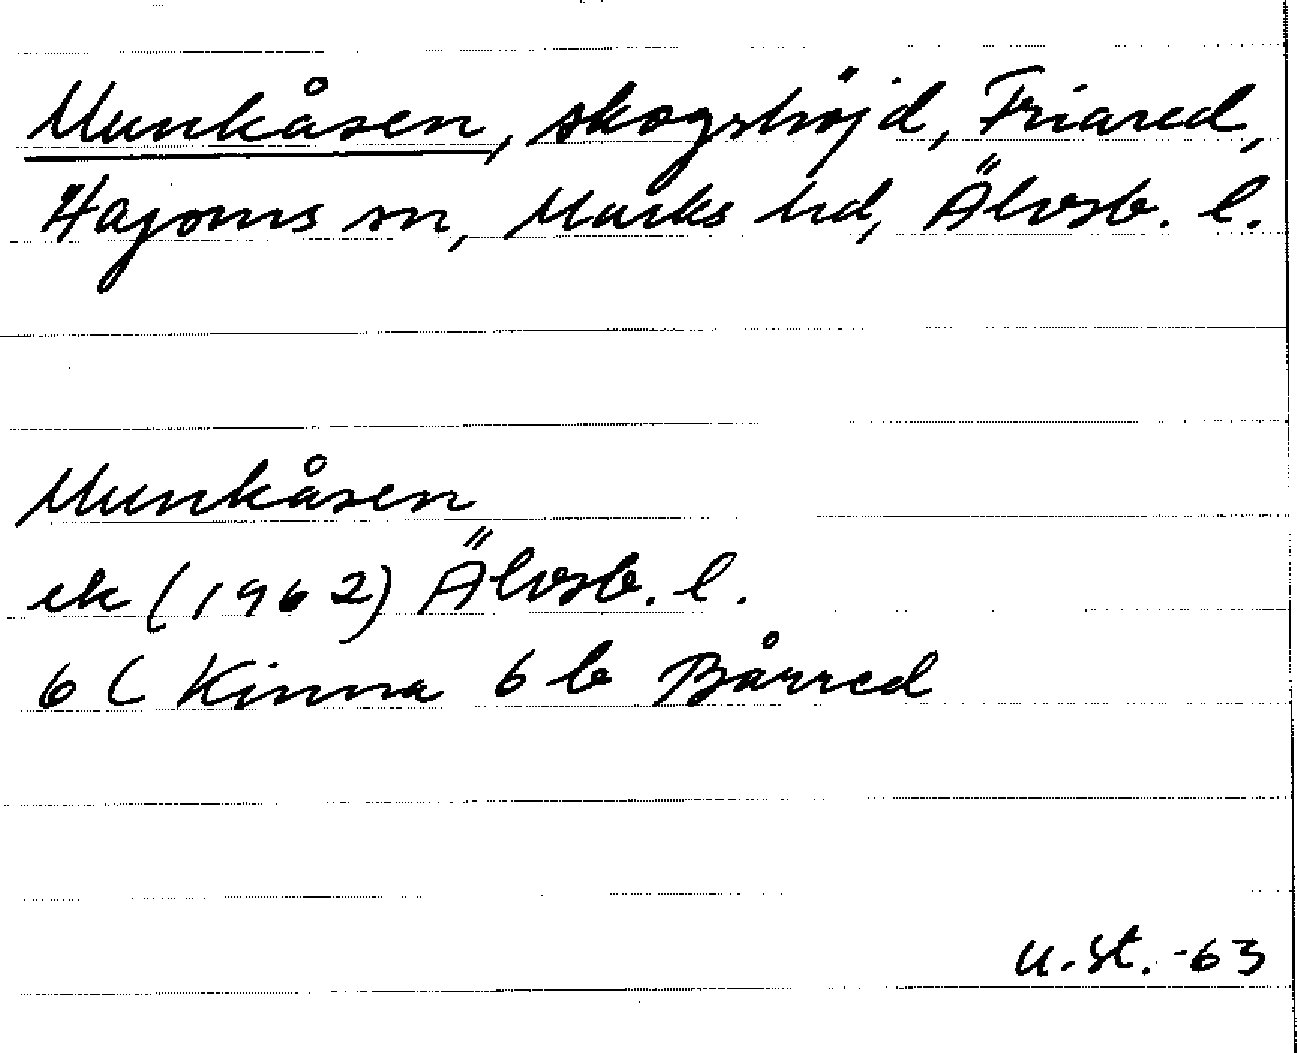 Munkåsen, skogshöjd, Friared,
Hajoms sn, Marks hd, Älvsb. l.
Munkåsen
ek (1962) Älvsb. l.
6 C Kinna 6 b Bårred
U. St. -63